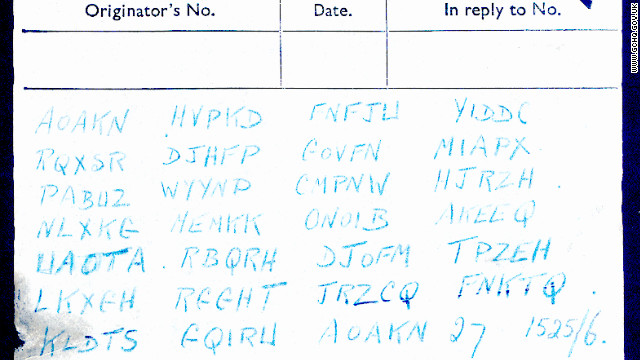 Originator's No. Date. In reply to No.
AOAKN HVPKD FNFJU YIDDC
RQXSR DJHFP GOVFN MIAPX
PABUZ WYYNP CMPNW HJRZH
NLXKG MEMKK ONOIB AKEEQ
UAOTA RBQRH DJOFM TPZEH
LKXGH RGGHT JRZCQ FNKTQ
KLDTS GQIRU AOAKN 27 1525/6
WWW.GCHQ.GOV.UK